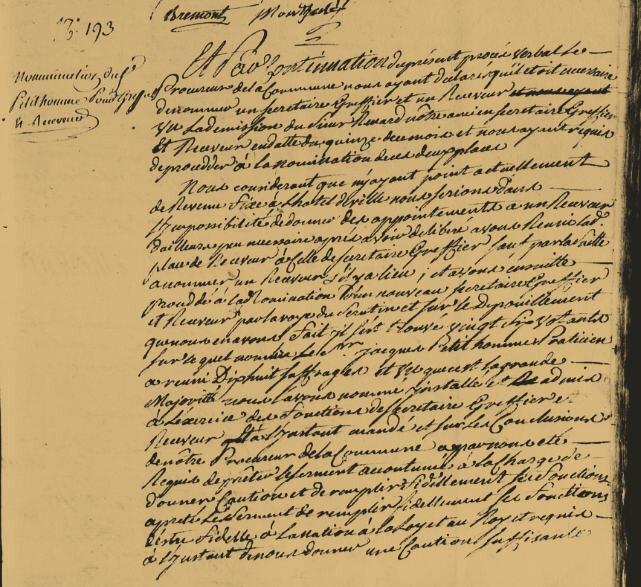 Bremont Montbrdet
N.° 193
Nomination du Sr
Petithomme Pour Greffier
et Receveur
Et Par Continuation du présent procès verbal Le
Procureur de la Commune nous ayant déclaré quil étoit necessaire
de nommer un secrétaire Greffier et un Receveur
Vu La demission du Sieur notre ancien secrétaire Greffier
Et Receveur en datte du quinze de ce mois et nous ayant requis
de procéder à la nomination de ces deux places
Nous considerant que n'ayant point actuellement
de Revenu Fixe à l'hotel de Ville nous serions dans
L'impossibilité de donner des appointements a un Receveur
d'ailleurs peu necessaire après avoir délibéré avons Réuni Lad
place de Receveur à Celle de secrétaire Greffier sauf par la suite
a nommer un Receveur s'il y a lieu ; et avons ensuite
procédé à la Nomination D'un nouveau secrétaire Greffier
et Receveur par la voye du scrutin et sur le Depouillement
que nous en avons Fait, il s'est Trouvé vingt six votants
sur lequel nombre le Sr jacques Petithomme Praticien
a reuni Dix huit suffrages et vu que c'est la grande
Majorité nous l'avons nommé, installé et admis
à L'exercice des Fonctions de secrétaire Greffier et
Receveur L'a L'instant mandé et sur les Conclusions
de nôtre Procureur de la Commune a par nous été
Requis de prêter le serment accoutumé à la charge de
donner Caution et de remplir fidellement ses Fonctions
après le serment de remplir fidellement ses Fonctions
d'être Fidelle à la nation à la Loy et au Roy et requis
à L'instant de nous donner une Caution suffisante